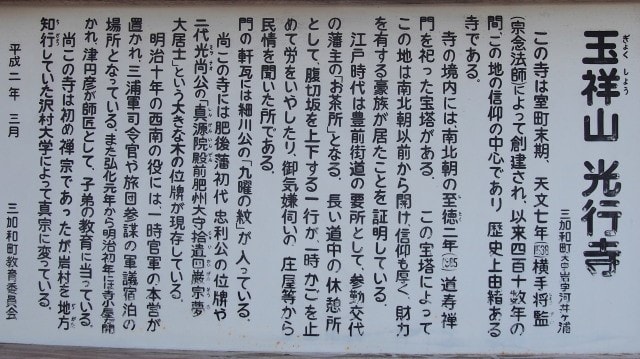 玉祥山 光行寺
ぎょく しょう
三加和町大字岩字河井ヶ浦
この寺は室町末期、天文七年(1538)横手将監
(宗念法師)によって創建され、以来四百十数年の
間この地の信仰の中心であり歴史上由緒ある
寺である。
寺の境内には南北朝の至徳二年(1385)道寿禅
門を祀った宝塔がある。この宝塔によって
この地は南北朝以前から開け、信仰も厚く、財力
を有する豪族が居たことを証明している。
江戸時代は豊前街道の要所として、参勤交代
の藩主の「お茶所」となる。長い道中の休憩所
として、腹切坂を上下する一行が、一時かごを止
めて労をいやしたり、御気嫌伺いの庄屋等から
民情を聞いた所である。
門の軒瓦には細川公の「九曜の紋」が入っている。
尚この寺には肥後藩初代忠利公の位牌や
二代光尚公の「真源院殿前肥州大守拾遺回巌宗夢
大居士」という大きな木の位牌が現存している。
明治十年の西南の役には、一時官軍の本営が
置かれ、三浦軍司令官や旅団参謀の軍議宿泊の
場所となっている。また弘化元年から明治初年には寺小屋が開
かれ、津円彦が師匠として、子弟の教育に当っている。
尚この寺は初め禅宗であったが岩村を地方
知行していた沢村大学によって真宗に変っている。
平成二年三月
三加和町教育委員会